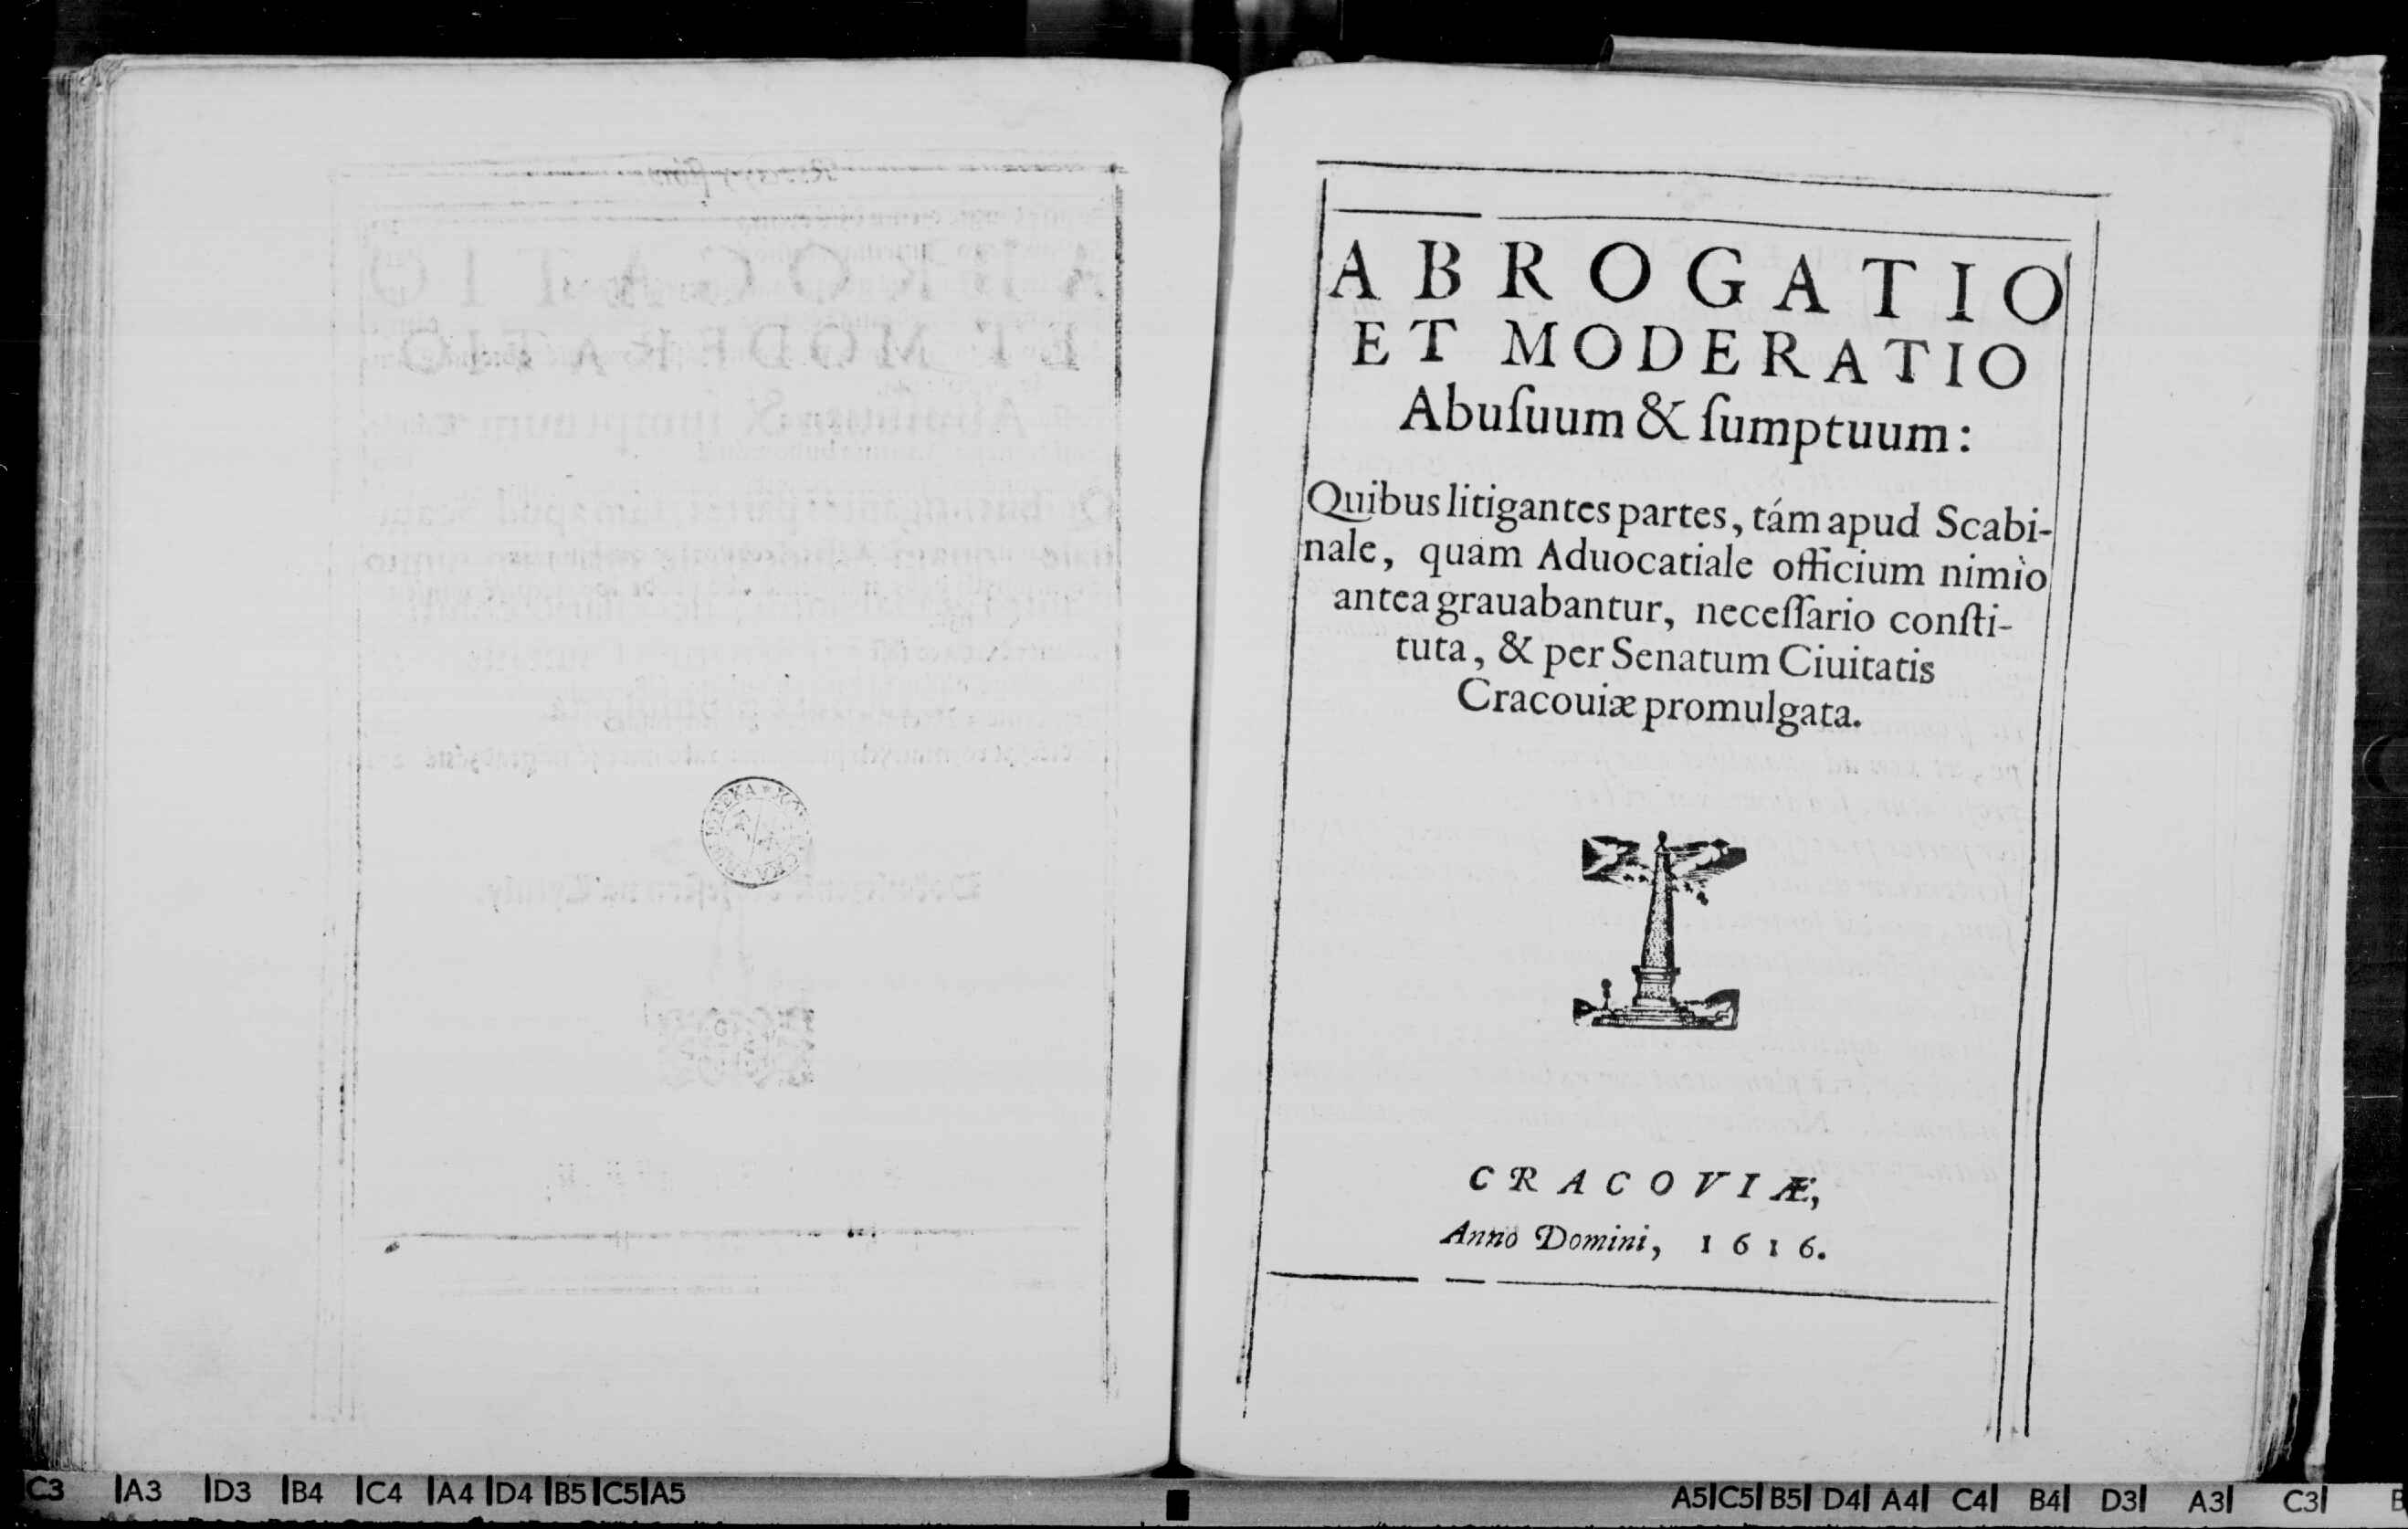 ABROGATIO
ET MODERATIO
Abuſuum & ſumptuum:
Quibus litigantes partes, tám apud Scabi-
nale, quàm Aduocatiale officium nimiò
antea grauabantur, neceſſario conſti-
tuta, & per Senatum Ciuitatis
Cracouiæ promulgata.
CRACOVIÆ,
Annò Domini, 1616.
C3 |A3 |D3 |B4 |C4 |A4 |D4 |B5 |C5 |A5
A5| C5| B5| D4| A4| C4| B4| D3| A3| C3|